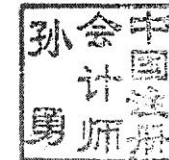 中国注册
会计师
孙勇